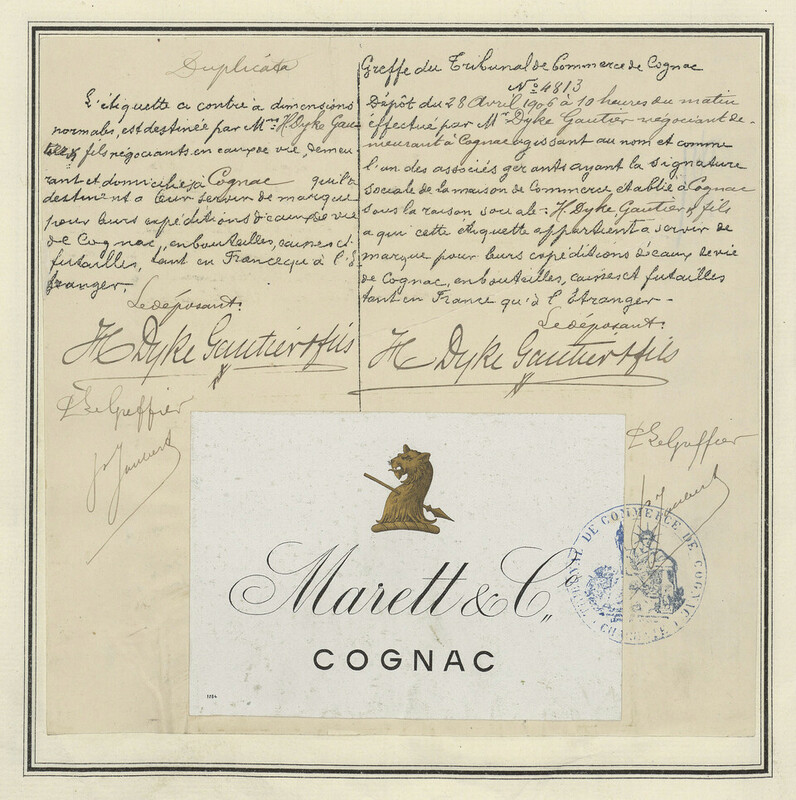 Duplicata
L'étiquette ci contre à dimensions
normales, est destinée par Mrs H. Dyke Gau-
tier & fils négociants en eaux de vie, demeu
rant et domiciliés à Cognac qu'ils
destinent à leur servir de marque
pour leurs expéditions d'eaux de vie
de Cognac, en bouteilles, caisses et
futailles, tant en France qu'à l'É
tranger.
Le déposant:
H Dyke Gautier & fils
Le Greffier
Jaubert
Greffe du Tribunal de Commerce de Cognac
No 4813
Dépôt du 28 Avril 1906 à 10 heures du matin
effectué par Mr Dyke Gautier négociant de-
meurant à Cognac agissant au nom et comme
l'un des associés gérants ayant la signature
sociale de la maison de Commerce, établie à Cognac
sous la raison sociale - H. Dyke Gautier & fils
a qui cette étiquette appartient à servir de
marque pour leurs expéditions d'eaux de vie
de Cognac, en bouteilles, caisses et futailles
tant en France qu'à l'Étranger -
Le déposant:
H Dyke Gautier & fils
Le Greffier
Jaubert
Marett & Co.,
COGNAC
1704
TRIBUNAL DE COMMERCE DE COGNAC
CHARENTE